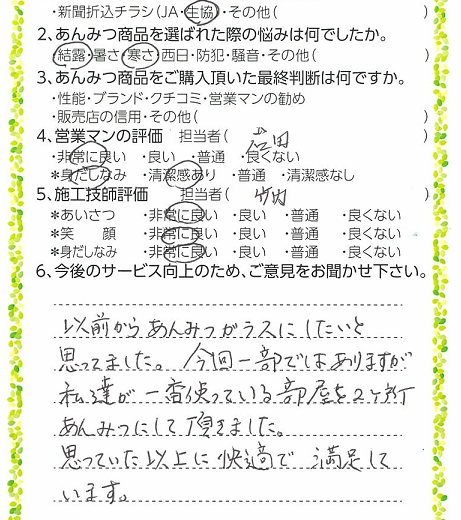 ・新聞折込チラシ(JA・生協)・その他( )
2、あんみつ商品を選ばれた際の悩みは何でしたか。
・結露・暑さ・寒さ・西日・防犯・騒音・その他( )
3、あんみつ商品をご購入頂いた最終判断は何ですか。
・性能・ブランド・クチコミ・営業マンの勧め
・販売店の信用・その他( )
4、営業マンの評価 担当者( 吉田 )
・非常に良い ・良い ・普通 ・良くない
＊身だしなみ ・清潔感あり ・普通 ・清潔感なし
5、施工技師評価 担当者( 竹内 )
＊あいさつ ・非常に良い ・良い ・普通 ・良くない
＊笑 顔 ・非常に良い ・良い ・普通 ・良くない
＊身だしなみ ・非常に良い ・良い ・普通 ・良くない
6、今後のサービス向上のため、ご意見をお聞かせ下さい。
以前からあんみつガラスにしたいと
思ってました。今回一部ではありますが
私達が一番使っている部屋を2ヶ所
あんみつにして頂きました。
思っていた以上に快適で満足して
います。